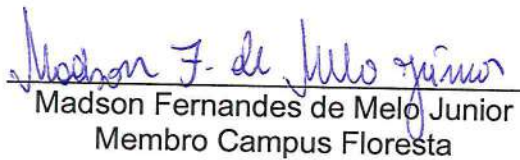 Madson F. de Melo Júnior
Madson Fernandes de Melo Junior
Membro Campus Floresta